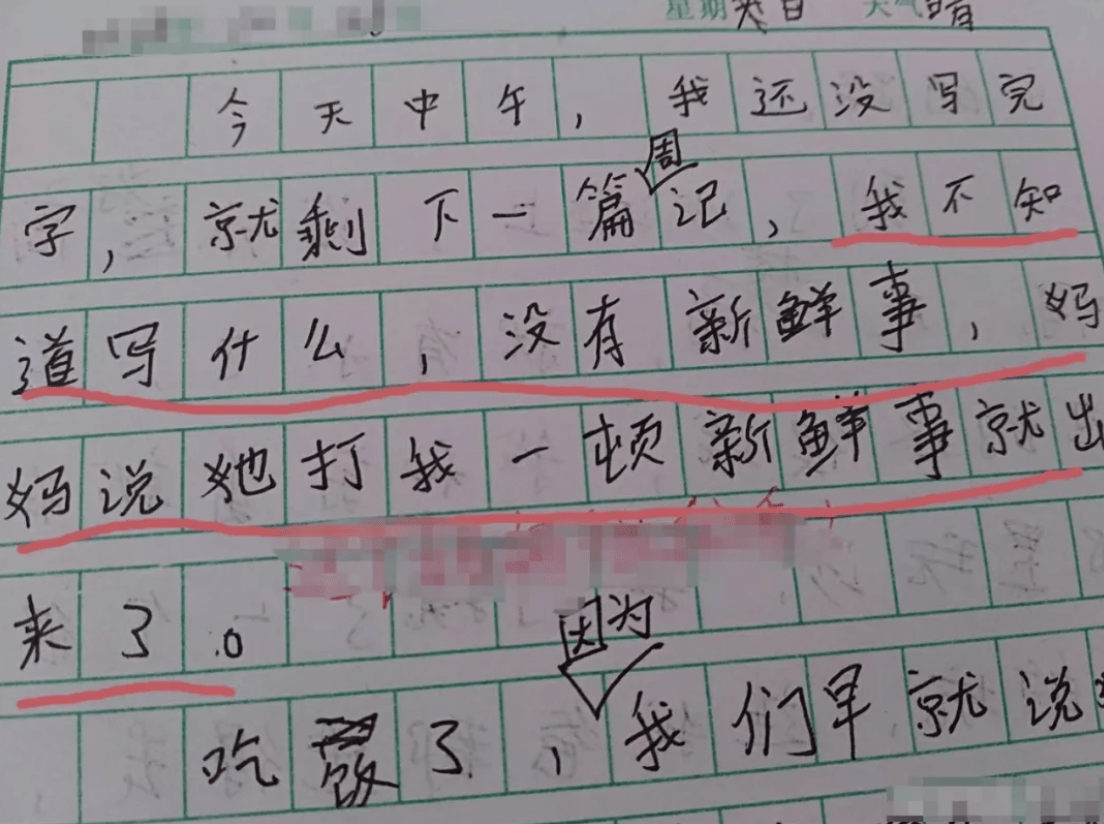 星期 天气 晴
今天中午，我还没写完
字，就剩下一篇周记，我不知
道写什么，没有新鲜事，妈
妈说她打我一顿新鲜事就出
来了。
吃饭了，因为我们早就说